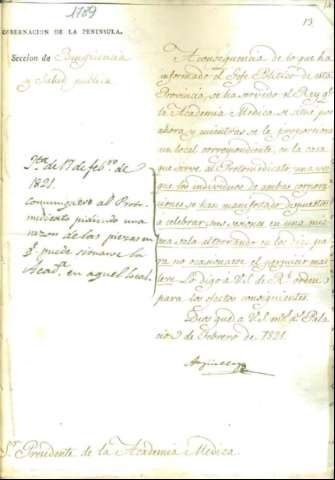 1789
13
GOBERNACION DE LA PENINSULA.
Seccion de Beneficencia
y Salud publica
A consequencia de lo que ha
informado el Jefe Politico de esta
Provincia, se ha servido el Rey q.e
la Academia Medica se situe por
ahora y mientras se le proporciona
un local correspondiente, en la casa
que sirve al Protomedicato, una vez
que los individuos de ambas corpora-
ciones se han manifestado dispuestos
a celebrar sus sesiones en una mis-
ma sala alternando en los dias pa-
ra no ocasionarse el perjuicio mas
leve. Lo digo à V.S. de R.l orden
para los efectos consiguientes.
Dios gue à V.S. m.s a.s Pala-
cio 9 de Febrero de 1821.
Argüelles
de 17 de feb.ro de
1821.
comuniquese al Proto-
medicato pidiendo una
razon de las piezas en
q.e puede situarse la
Acad.a en aquel local.
S.r Presidente de la Academia Medica.